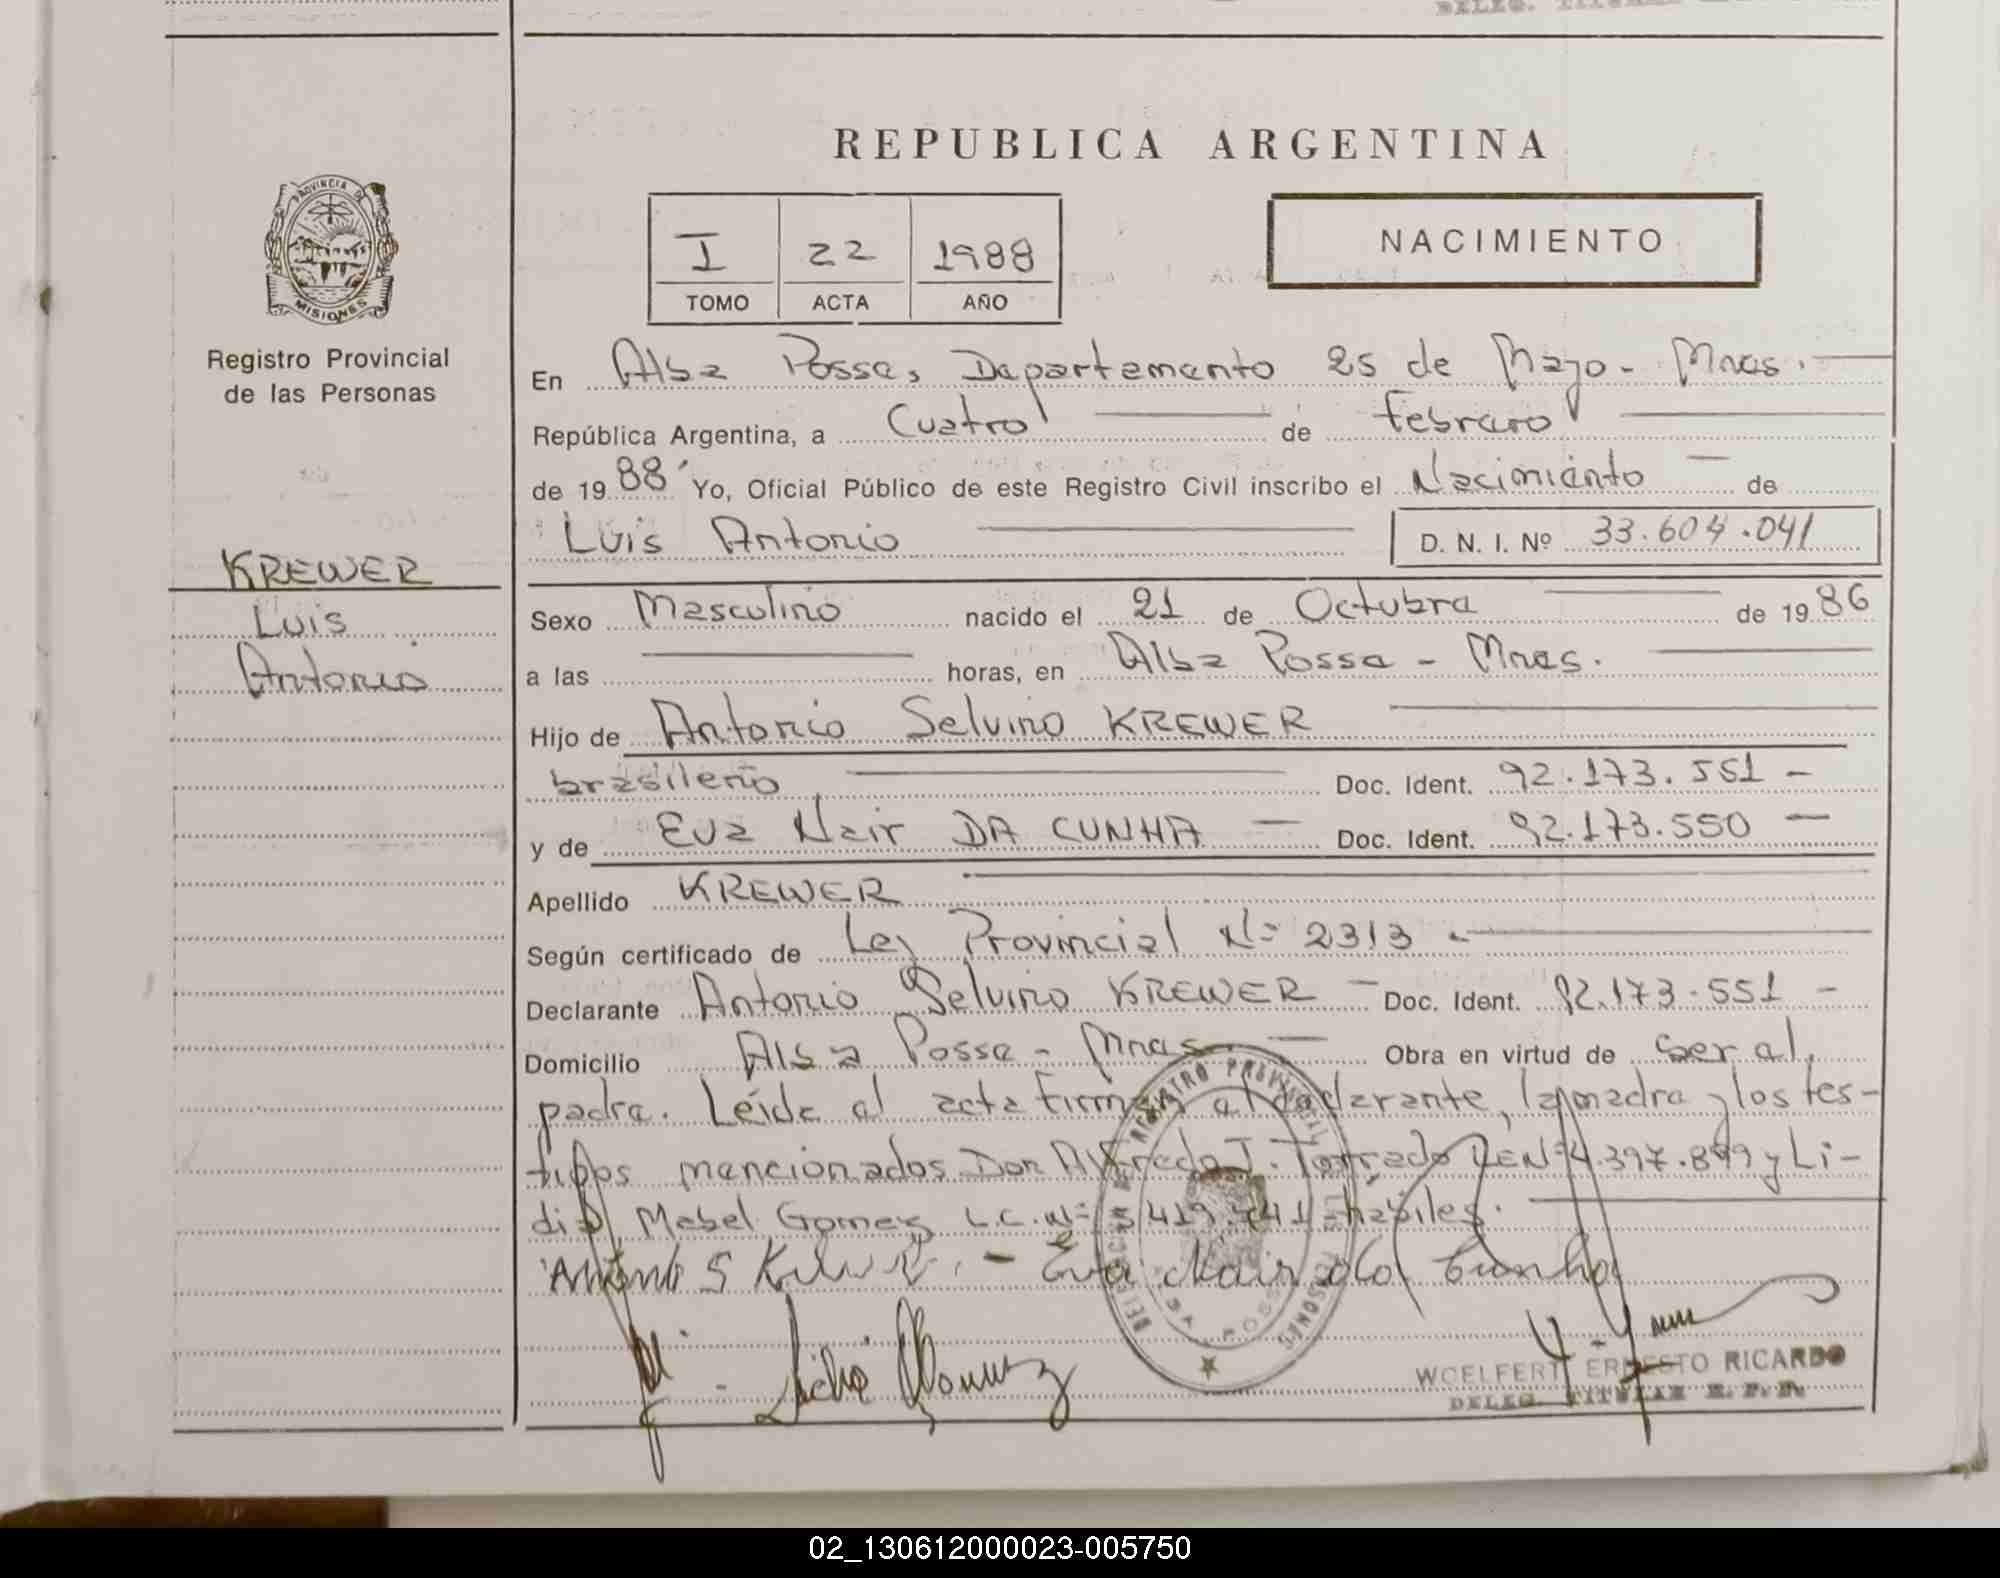 REPUBLICA ARGENTINA
PROVINCIA DE
MISIONES
Registro Provincial
de las Personas
KREWER
Luis
Antonio
I 22 1988
TOMO ACTA AÑO
NACIMIENTO
En Alba Posse, Departamento 25 de Mayo - Mnes.
República Argentina, a Cuatro de febrero
de 1988 Yo, Oficial Público de este Registro Civil inscribo el Nacimiento de
Luis Antonio D. N. I. Nº 33.604.041
Sexo Masculino nacido el 21 de Octubre de 1986
a las horas, en Alba Posse - Mnes.
Hijo de Antonio Selvino KREWER
brasileño Doc. Ident. 92.173.551 -
y de Eva Nair DA CUNHA - Doc. Ident. 92.173.550 -
Apellido KREWER
Según certificado de Ley Provincial Nº 2313 -
Declarante Antonio Selvino KREWER - Doc. Ident. 92.173.551 -
Domicilio Alba Posse - Mnes. - Obra en virtud de ser el
padre. Leída el acta firman el declarante, la madre y los tes-
tigos mencionados Don Alfredo J. Torrado LEN= 4.397.899 y Li-
dia Mabel Gomez L.C. Nº hábiles.
Antonio S - Eva Nair da Cunha
Lidia Gomez
WOELFERT ERNESTO RICARDO
DELEG. TITULAR R. P. P.
02_130612000023-005750